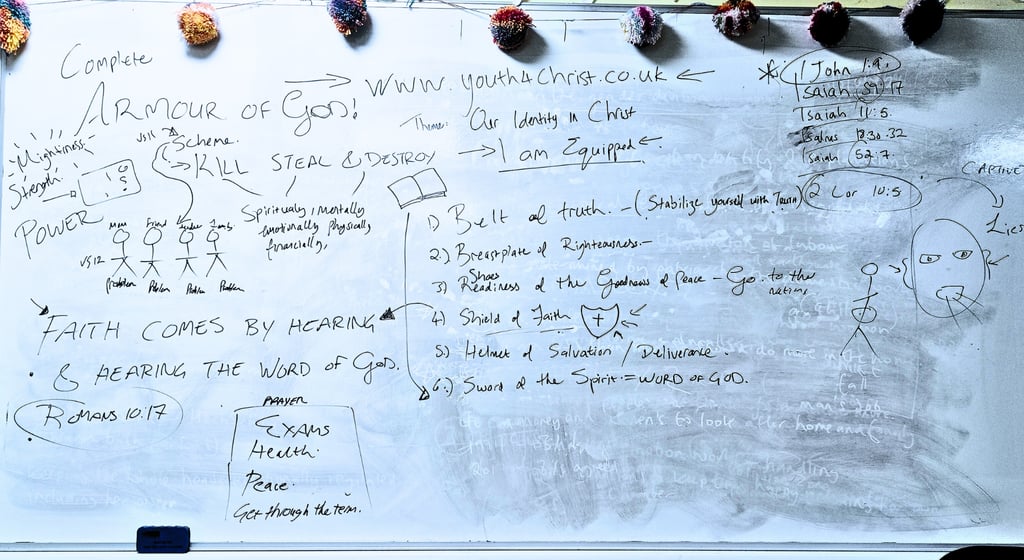 Complete
ARMOUR OF God!
→ www.youth4Christ.co.uk ←
Theme: Our Identity in Christ
→ I am Equipped ←
* 1 John 1:9
Isaiah 59:17
Isaiah 11:5
Isaiah 52:7
2 Cor 10:5
CAPTIVE
Lies
Mightiness
Strength
POWER
VS11
Scheme.
KILL STEAL & DESTROY
Spiritually, mentally
emotionally physically
financially,
Mum Friend
VS12
Problem Problem Problem Problem
1) Belt of truth. - (Stabilize yourself with Truth)
2.) Breastplate of Righteousness -
Shoes
3) Readiness of the Goodness of Peace - Go to the
nations
4) Shield of Faith
5) Helmet of Salvation / Deliverance.
6.) Sword of the Spirit = WORD OF GOD.
FAITH COMES BY HEARING
& HEARING THE WORD OF GOD.
ROMANS 10:17
PRAYER
Exams
Health.
Peace.
Get through the term.